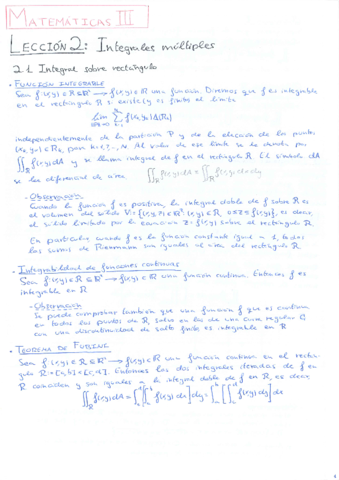 MATEMÁTICAS III
LECCIÓN 2: Integrales múltiples
2.1 Integral sobre rectángulo
• FUNCIÓN INTEGRABLE
Sea f:(x,y)∈R⊆ℝ² → f(x,y)∈ℝ una función. Diremos que f es integrable
en el rectángulo R si existe (y es finito) el límite
lim Σ f(xₖ,yₖ)Δ(Rₖ)
independientemente de la partición P y de la elección de los puntos
(xₖ,yₖ)∈Rₖ, para k=1,..., N. Al valor de ese límite se le denota por
∬_R f(x,y)dA y se llama integral de f en el rectángulo R. El símbolo dA
es la diferencial de área ∬_R f(x,y)dA = ∬ f(x,y)dxdy
- Observación
Cuando la función f es positiva, la integral doble de f sobre R es
el volumen del sólido V={(x,y,z)∈ℝ³:(x,y)∈R, 0≤z≤f(x,y)}, es decir,
el sólido limitado por la función z=f(x,y) sobre el rectángulo R.
En particular, cuando f es la función constante igual a 1, todas
las sumas de Riemann son iguales al área del rectángulo R
• Integrabilidad de funciones continuas
Sea f:(x,y)∈R⊆ℝ² → f(x,y)∈ℝ una función continua. Entonces f es
integrable en R
- Observación
Se puede comprobar también que una función f que es continua
en todos los puntos de R, salvo en los de una curva regular C
con una discontinuidad de salto finito es integrable en R
• TEOREMA DE FUBINI
Sea f:(x,y)∈R⊆ℝ² → f(x,y)∈ℝ una función continua en el rectán-
gulo R=[a,b]×[c,d]. Entonces las dos integrales iteradas de f en
R coinciden y son iguales a la integral doble de f en R, es decir
∬_R f(x,y)dA = ∫_c^d [∫_a^b f(x,y)dx]dy = ∫_a^b [∫_c^d f(x,y)dy]dx